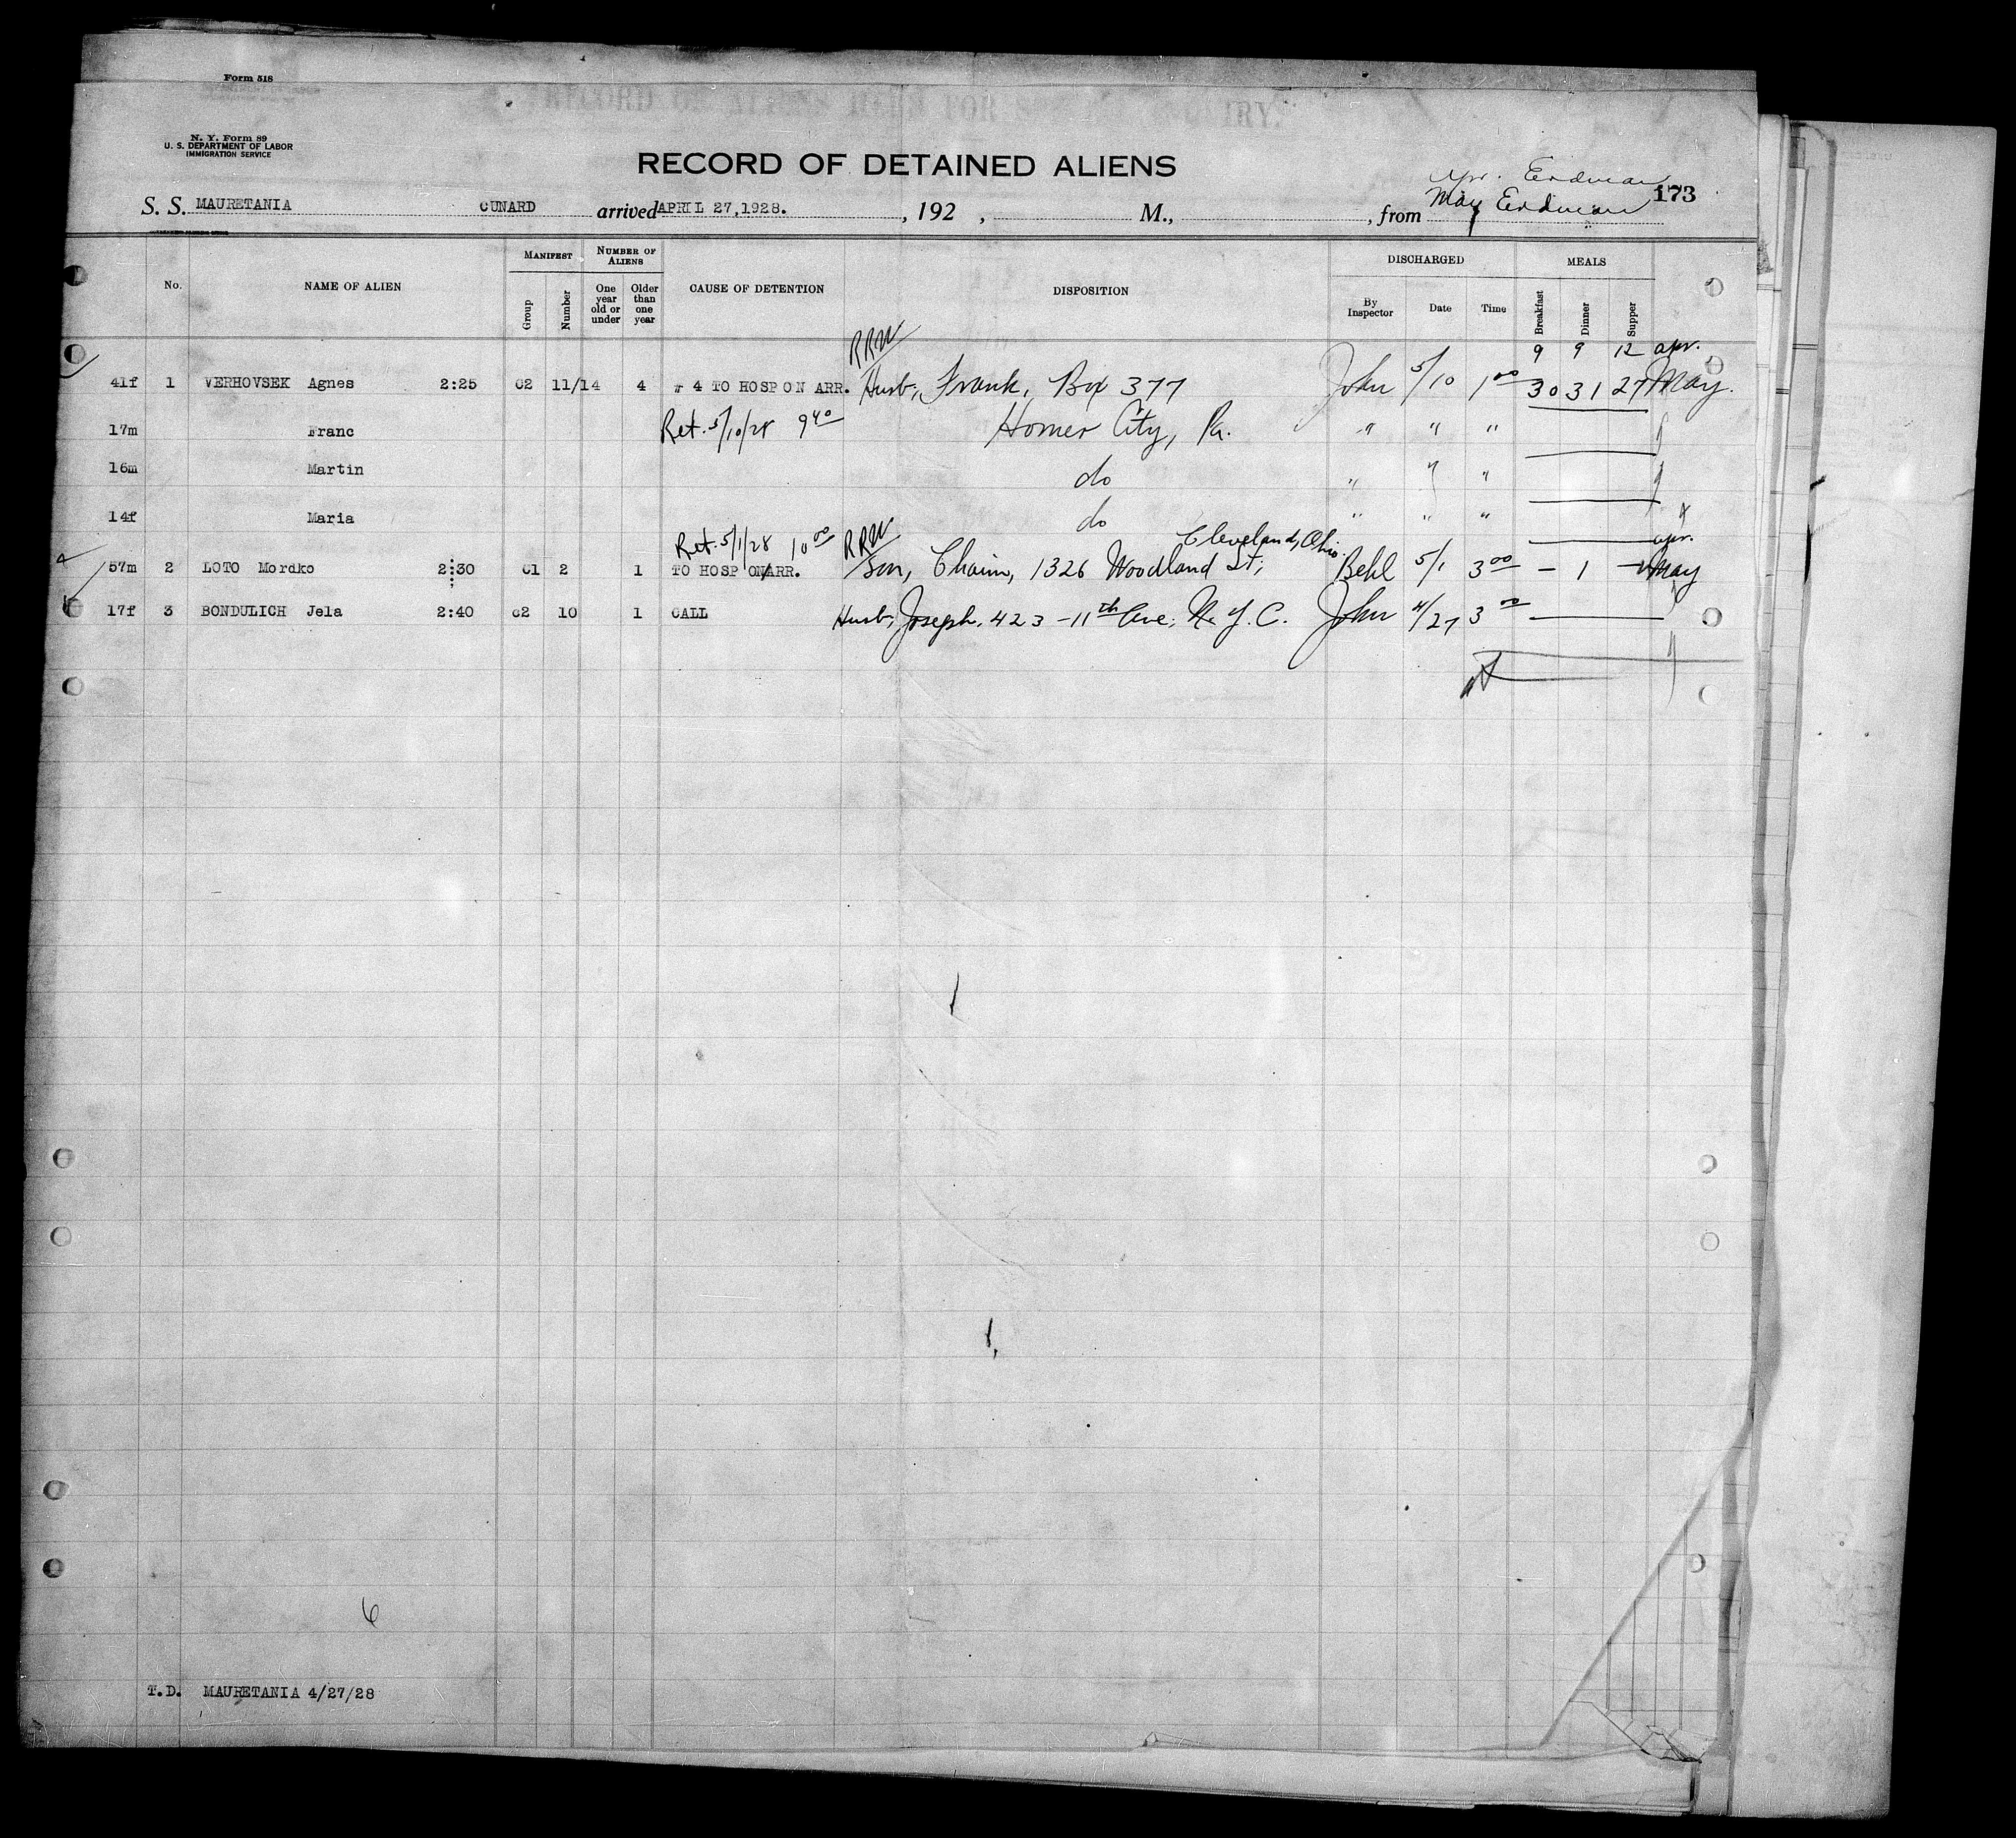 Form 518
RECORD OF ALIENS HELD FOR SPECIAL INQUIRY.
N. Y. Form 89
U. S. DEPARTMENT OF LABOR
IMMIGRATION SERVICE
RECORD OF DETAINED ALIENS
Apr. Erdman
May Erdman 173
S. S. MAURETANIA CUNARD arrived APRIL 27,1928. , 192 , M., , from
No. NAME OF ALIEN MANIFEST Group Number NUMBER OF ALIENS One year old or under Older than one year CAUSE OF DETENTION DISPOSITION DISCHARGED By Inspector Date Time MEALS Breakfast Dinner Supper
RRW 9 9 12 apr.
41f 1 VERHOVSEK Agnes 2:25 C2 11/14 4 4 TO HOSP ON ARR. Husb, Frank, Box 377 John 5/10 1 00 30 31 27 May.
17m Franc Ret. 5/10/28 9 40 Homer City, Pa. " " "
16m Martin do " " "
14f Maria do " " "
Ret. 5/1/28 10 00 RRW Cleveland, Ohio. apr.
57m 2 LOTO Mordko 2:30 C1 2 1 TO HOSP ON ARR. Son, Chaim, 1326 Woodland St; Behl 5/1 3 00 – 1 – May
17f 3 BONDULICH Jela 2:40 C2 10 1 CALL Husb, Joseph, 423 – 11th Ave, N.Y.C. John 4/27 3 00
6
T.D. MAURETANIA 4/27/28